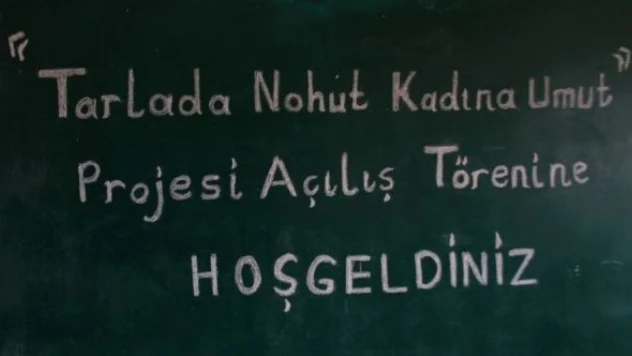 "Tarlada Nohut Kadına Umut"
Projesi Açılış Törenine
HOŞGELDİNİZ